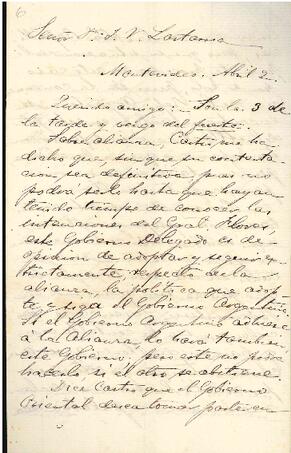 6
Señor Dn. J. V. Lastarria
Montevideo. Abril 2.
Querido amigo: Son las 3 de
la tarde y vengo del puerto.
Sobre alianza, Castro me ha
dicho que, sin que su contesta-
cion sea definitiva, pues no
podrá serlo hasta que hayan
tenido tiempo de conocer las
intenciones del Gral. Flores,
este Gobierno Delegado es de
opinion de adoptar y seguir es-
trictamente, respecto de la
alianza, la política que adop-
te y siga el Gobierno Argentino.
Si el Gobierno Argentino adhiere
á la Alianza, lo hará tambien
este Gobierno; pero este no podrá
hacerlo si el otro se abstiene.
Dice Castro que el Gobierno
Oriental desea tomar parte en